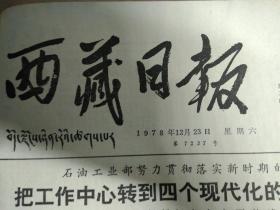 西藏日报
བོད་ལྗོངས་ཉིན་རེའི་ཚགས་པར
1978年12月23日 星期六
第7227号
石油工业部努力贯彻落实新时期的
把工作中心转到四个现代化的